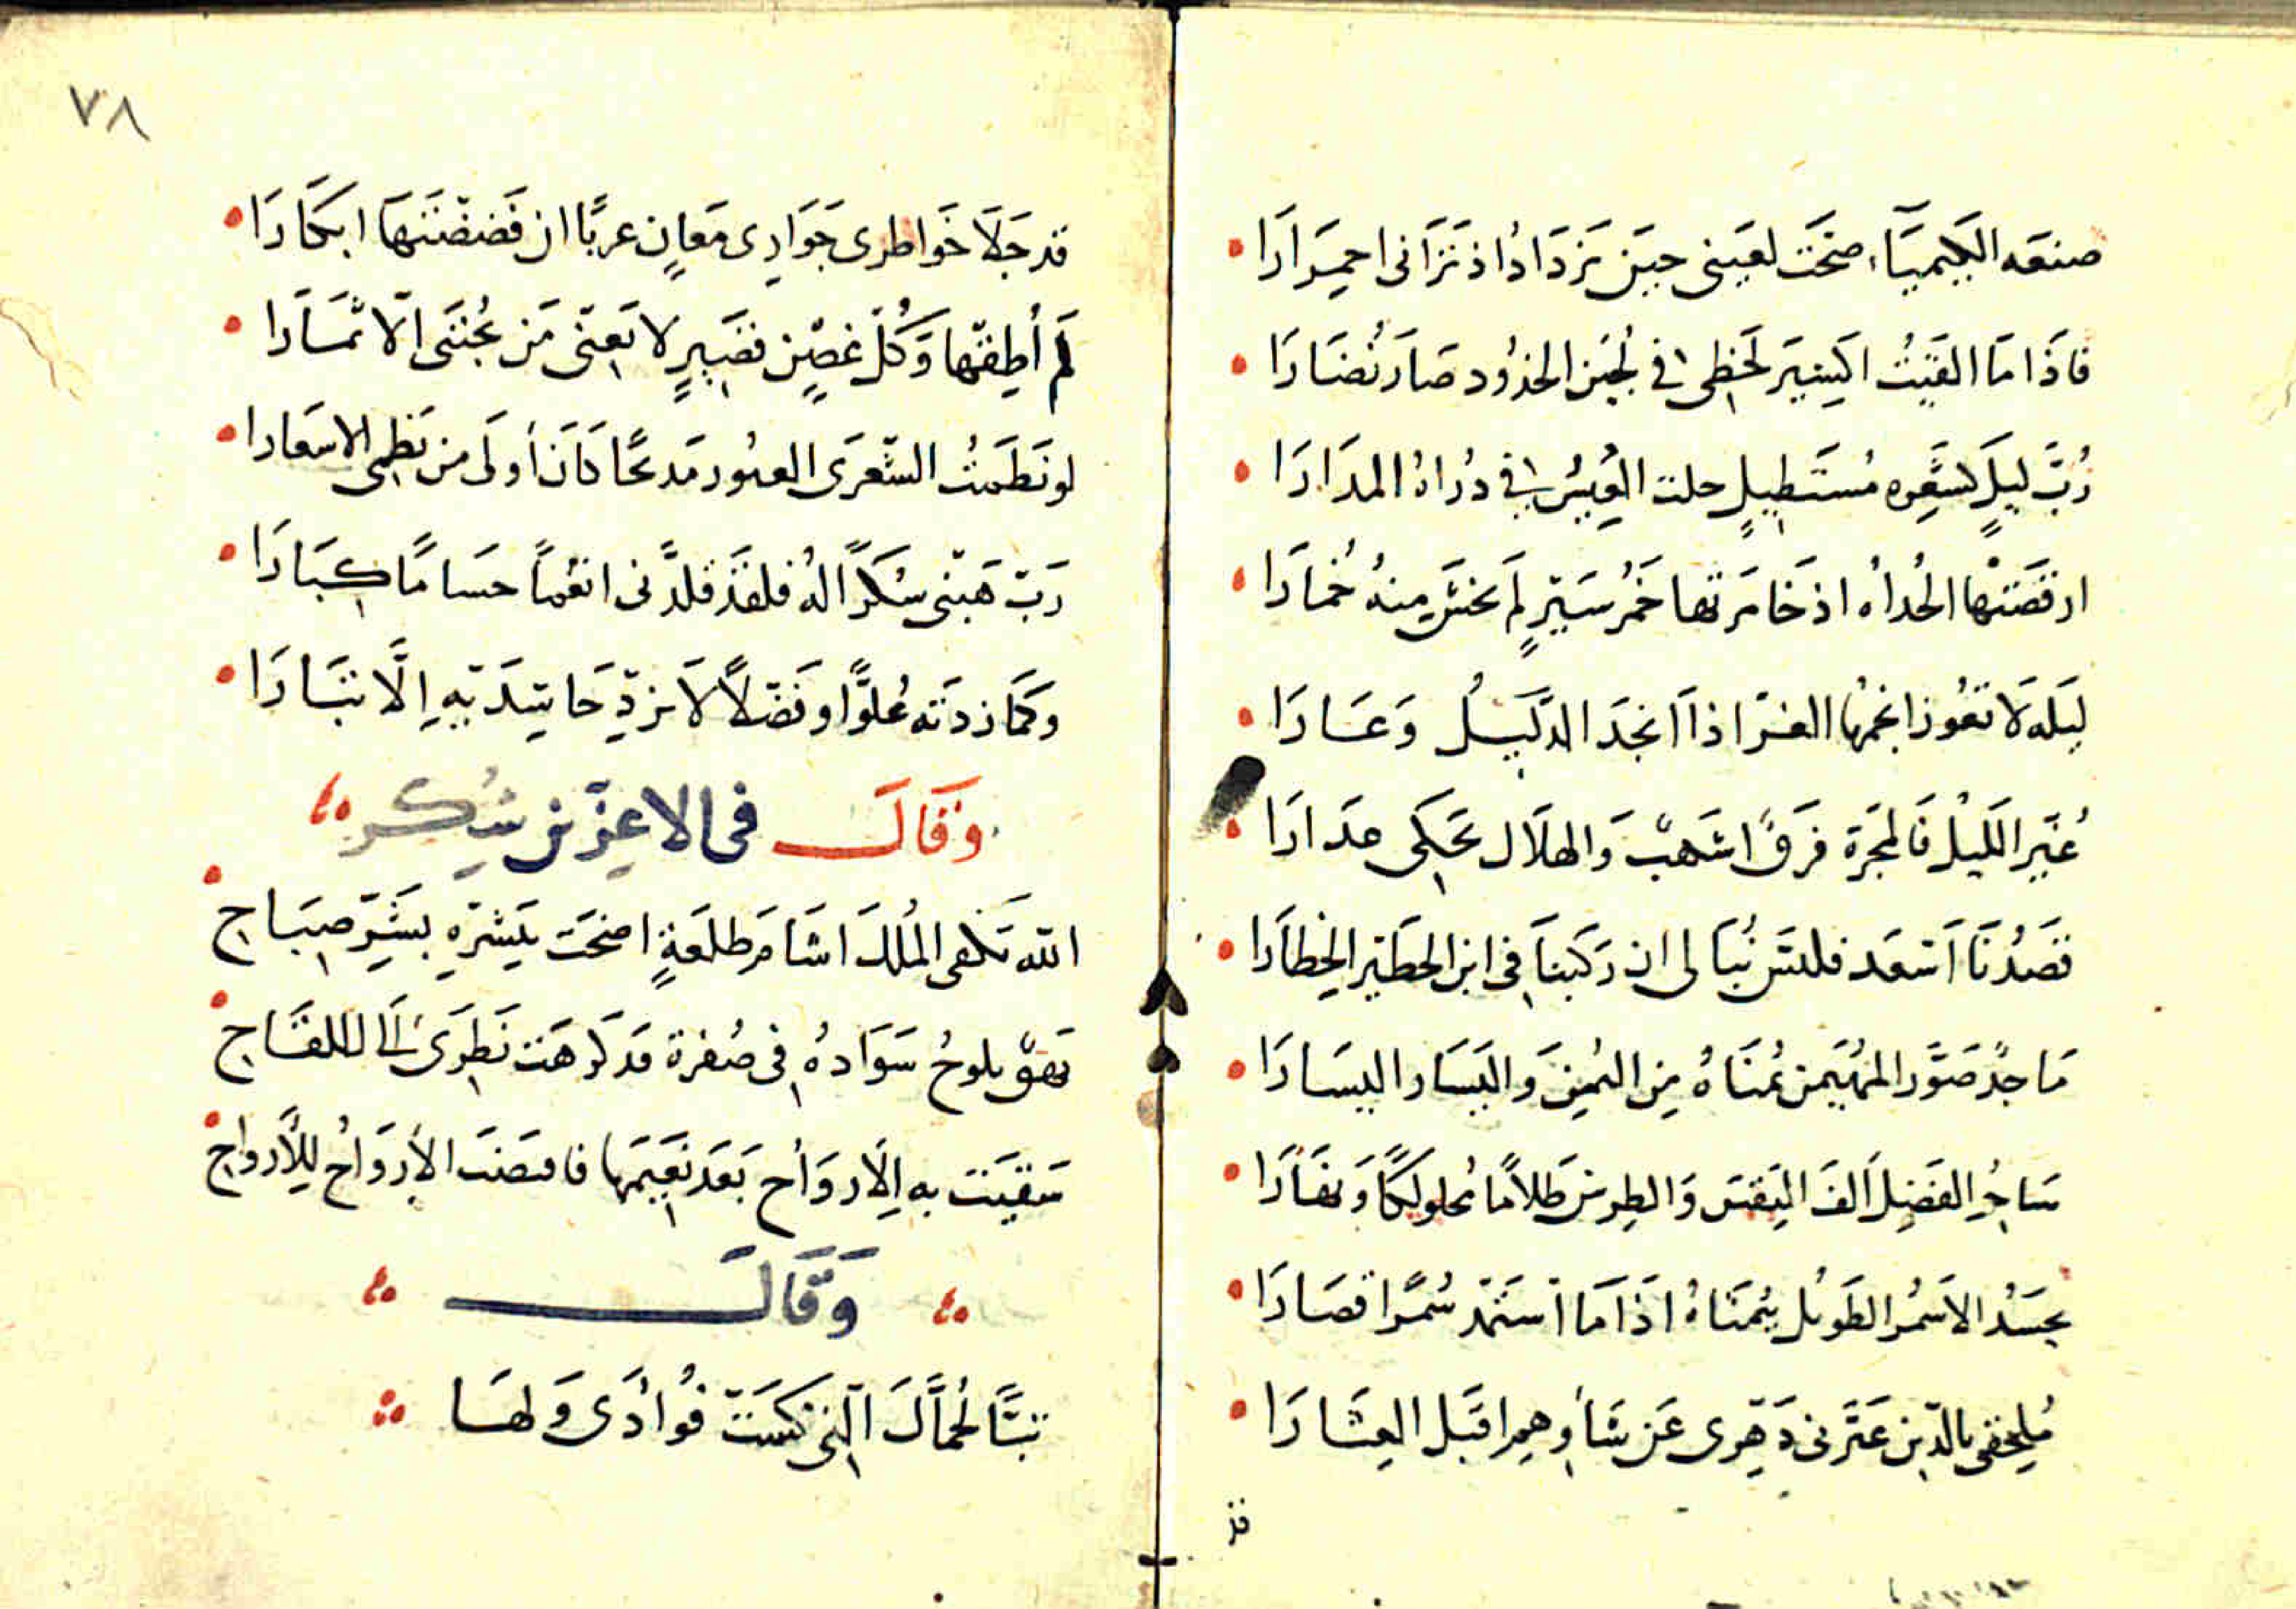 صنعه الكيمياء صحّت لعيني حين تزداد اذ تراني احمرارا
فاذا ما القيتُ اكسير لحظي في لجين الخدود صار نُضارا
رُبَّ ليلٍ كشعره مستطيلٍ حلت العيس في دُراه المدارا
ارقصتها الحُداه اذ خامرتها خمرُ سيرٍ لم تخش منهُ خُمارا
ليله لا تغور انجمها الغرّ اذا انجد الدليلُ وغارا
غبّر الليل فالمجرة فرقًا اشهب والهلال يحكي عذارا
قصدُنا اسعد فلس نبالي ان ركبنا في ابن الخطير الخطارا
ماجدٌ صوَّر المهيمن يُمناهُ من اليُمن واليسار اليسارا
ساجي الفضل الف النقس والطرس ظلامًا محلولكًا ونهارا
يحسد الاسمرُ الطويل بيُمناهُ اذا ما استمد سُمرًا قصارا
مُلحقي بالذين عترني دهري عن شأوهم اقبل العثارا
قد
٧٨
قد جلا خواطري جواري معانٍ عربًا ان فضضتها ابكارا
لم أطقها وكلّ غصنٍ نضيرٍ لا يعنّى من يجتنى الا ثمارا
لو نظمتُ الشّعرى العبور مدحًا كان أولى من نظمى الاشعارا
ربّ هبني شكرًا له فلقد قلّدني انعمًا حساما كبارا
وكما زدته علوًّا وفضلًا لا تزد حاسديه إلّا تبارا
وقال في الاعز بن شكر
الله تكفى الملك اشام طلعةٍ اضحت بشرّه بشرّ صباح
بهق يلوحُ سوادهُ في صُفرة قد كرهت نظرى الى اللقاح
شقيت به الارواح بعد نعيمها فامضت الارواح للأرواح
وقال
تبًّا لحمّاك التي كست فُوادى ولها